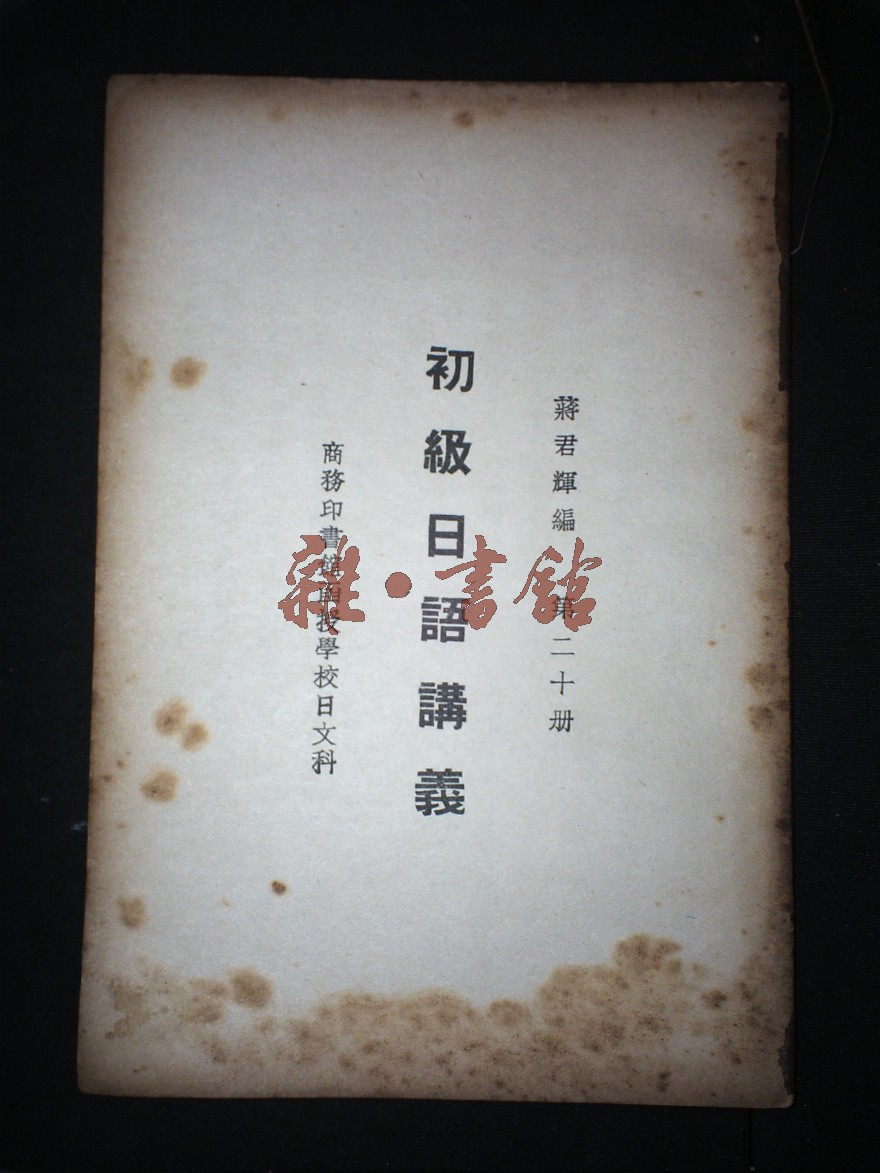 蔣君輝編 第二十册
初級日語講義
商務印書館函授學校日文科
雜·書館